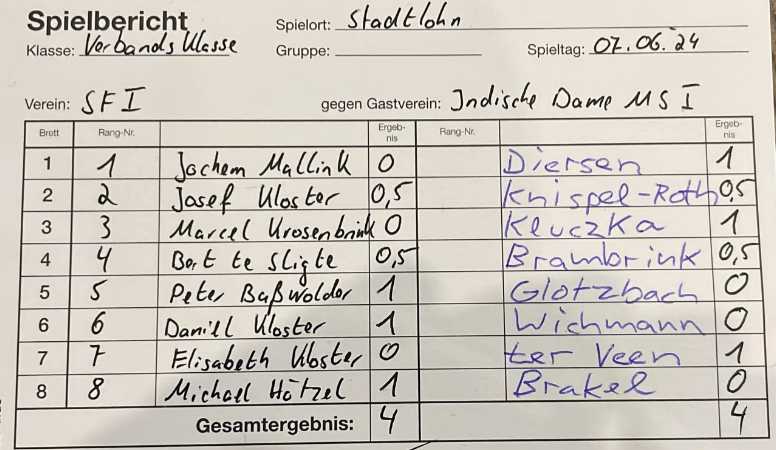 Spielbericht Spielort: Stadtlohn
Klasse: Verbandsklasse Gruppe: Spieltag: 07.06.24
Verein: SF I gegen Gastverein: Indische Dame MS I
Brett Rang-Nr. Ergeb-nis Rang-Nr. Ergeb-nis
1 1 Jochem Mallink 0 Diersen 1
2 2 Josef Kloster 0,5 Knispel-Roth 0,5
3 3 Marcel Krosenbrink 0 Kluczka 1
4 4 Bart te Sligte 0,5 Brambrink 0,5
5 5 Peter Baßwolder 1 Glotzbach 0
6 6 Daniel Kloster 1 Wichmann 0
7 7 Elisabeth Kloster 0 ter Veen 1
8 8 Michael Hötzel 1 Brakel 0
Gesamtergebnis: 4 4